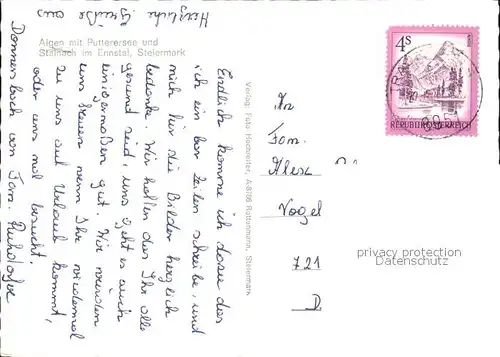 Herzliche Grüße aus
Aigen mit Putterersee und
Stainach im Ennstal, Steiermark
Endlich komme ich dazu das
ich ein par Zeilen schreibe, und
mich für die Bilder herzlich
bedanke. Wir hoffen das Ihr alle
gesund seid, uns geht es auch
einigermaßen gut. Wir würden
uns freuen wenn Ihr wiedermal
zu uns auf Urlaub kommt,
oder uns mal besucht.
Donnersbach von Fam.
Verlag: Foto Hochreiter, A-8786 Rottenmann, Steiermark
4S
REPUBLIK ÖSTERREICH
An
Fam.
Alex
Vogel
721
D.
privacy protection
Datenschutz